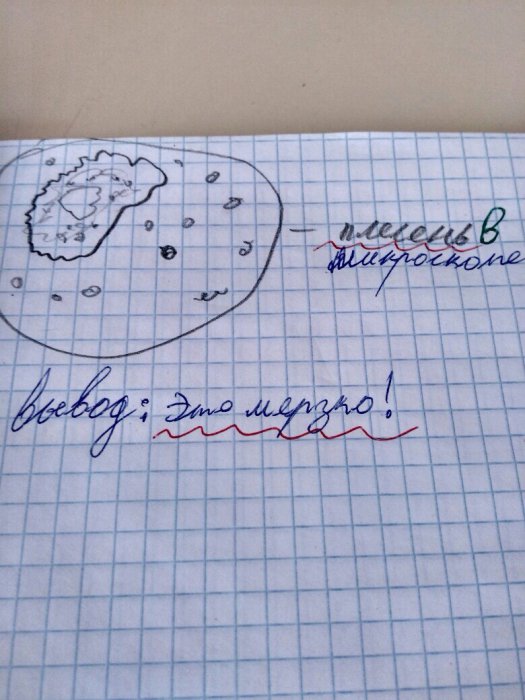 — плесень в
микроскопе
Вывод: Это мерзко!